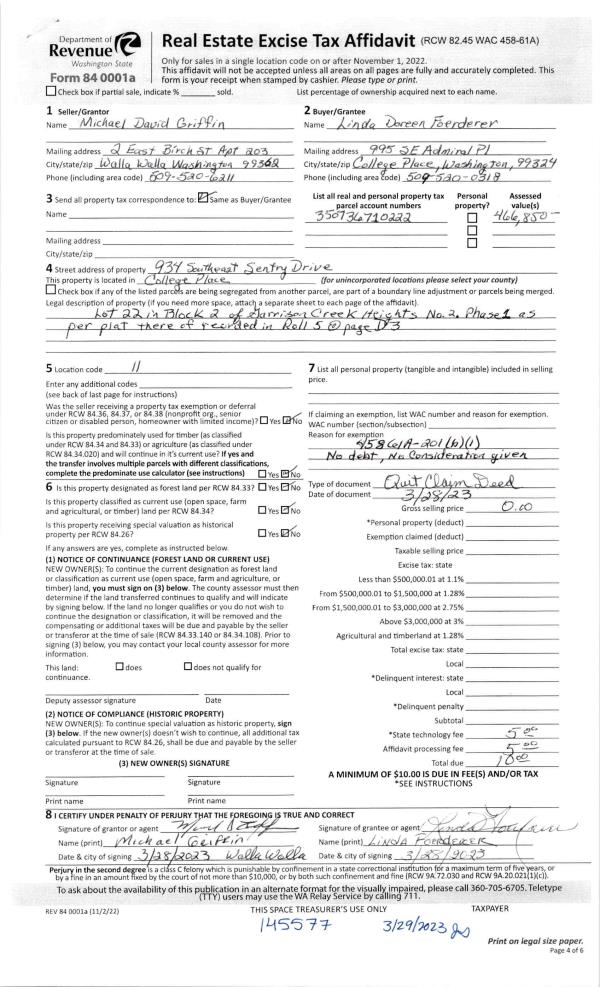 Department of
Revenue
Washington State
Form 84 0001a
Real Estate Excise Tax Affidavit (RCW 82.45 WAC 458-61A)
Only for sales in a single location code on or after November 1, 2022.
This affidavit will not be accepted unless all areas on all pages are fully and accurately completed. This
form is your receipt when stamped by cashier. Please type or print.
Check box if partial sale, indicate % ______ sold.
List percentage of ownership acquired next to each name.
1 Seller/Grantor
Name Michael David Griffin
Mailing address 2 East Birch St Apt 203
City/state/zip Walla Walla Washington 99362
Phone (including area code) 509-520-6211
2 Buyer/Grantee
Name Linda Doreen Foerderer
Mailing address 995 SE Admiral Pl
City/state/zip College Place, Washington, 99324
Phone (including area code) 509-520-0318
3 Send all property tax correspondence to: Same as Buyer/Grantee
Name
Mailing address
City/state/zip
List all real and personal property tax
parcel account numbers
Personal
property?
Assessed
value(s)
350736710222
466,850
4 Street address of property 934 Southeast Sentry Drive
This property is located in College Place (for unincorporated locations please select your county)
Check box if any of the listed parcels are being segregated from another parcel, are part of a boundary line adjustment or parcels being merged.
Legal description of property (if you need more space, attach a separate sheet to each page of the affidavit).
Lot 22 in Block 2 of Garrison Creek Heights No. 2. Phase 1 as
per plat there of recorded in Roll 5 @ page D 3
5 Location code 11
Enter any additional codes
(see back of last page for instructions)
Was the seller receiving a property tax exemption or deferral
under RCW 84.36, 84.37, or 84.38 (nonprofit org., senior
citizen or disabled person, homeowner with limited income)? Yes No
Is this property predominately used for timber (as classified
under RCW 84.34 and 84.33) or agriculture (as classified under
RCW 84.34.020) and will continue in it's current use? If yes and
the transfer involves multiple parcels with different classifications,
complete the predominate use calculator (see instructions) Yes No
6 Is this property designated as forest land per RCW 84.33? Yes No
Is this property classified as current use (open space, farm
and agricultural, or timber) land per RCW 84.34? Yes No
Is this property receiving special valuation as historical
property per RCW 84.26? Yes No
If any answers are yes, complete as instructed below.
(1) NOTICE OF CONTINUANCE (FOREST LAND OR CURRENT USE)
NEW OWNER(S): To continue the current designation as forest land
or classification as current use (open space, farm and agriculture, or
timber) land, you must sign on (3) below. The county assessor must then
determine if the land transferred continues to qualify and will indicate
by signing below. If the land no longer qualifies or you do not wish to
continue the designation or classification, it will be removed and the
compensating or additional taxes will be due and payable by the seller
or transferor at the time of sale (RCW 84.33.140 or 84.34.108). Prior to
signing (3) below, you may contact your local county assessor for more
information.
This land: does does not qualify for
continuance.
Deputy assessor signature Date
(2) NOTICE OF COMPLIANCE (HISTORIC PROPERTY)
NEW OWNER(S): To continue special valuation as historic property, sign
(3) below. If the new owner(s) doesn't wish to continue, all additional tax
calculated pursuant to RCW 84.26, shall be due and payable by the seller
or transferor at the time of sale.
(3) NEW OWNER(S) SIGNATURE
Signature Signature
Print name Print name
7 List all personal property (tangible and intangible) included in selling
price.
If claiming an exemption, list WAC number and reason for exemption.
WAC number (section/subsection)
Reason for exemption
458 61A-201 (b)(1)
No debt, No Consideration given
Type of document Quit Claim Deed
Date of document 3/28/23
Gross selling price 0.00
*Personal property (deduct)
Exemption claimed (deduct)
Taxable selling price
Excise tax: state
Less than $500,000.01 at 1.1%
From $500,000.01 to $1,500,000 at 1.28%
From $1,500,000.01 to $3,000,000 at 2.75%
Above $3,000,000 at 3%
Agricultural and timberland at 1.28%
Total excise tax: state
Local
*Delinquent interest: state
Local
*Delinquent penalty
Subtotal
*State technology fee 5.00
Affidavit processing fee 5.00
Total due 10.00
A MINIMUM OF $10.00 IS DUE IN FEE(S) AND/OR TAX
*SEE INSTRUCTIONS
8 I CERTIFY UNDER PENALTY OF PERJURY THAT THE FOREGOING IS TRUE AND CORRECT
Signature of grantor or agent
Name (print) Michael Griffin
Date & city of signing 3/28/2023 Walla Walla
Signature of grantee or agent
Name (print) LINDA FOERDERER
Date & city of signing 3/28/2023
Perjury in the second degree is a class C felony which is punishable by confinement in a state correctional institution for a maximum term of five years, or
by a fine in an amount fixed by the court of not more than $10,000, or by both such confinement and fine (RCW 9A.72.030 and RCW 9A.20.021(1)(c)).
To ask about the availability of this publication in an alternate format for the visually impaired, please call 360-705-6705. Teletype
(TTY) users may use the WA Relay Service by calling 711.
REV 84 0001a (11/2/22)
THIS SPACE TREASURER'S USE ONLY
TAXPAYER
145577
3/29/2023
Print on legal size paper.
Page 4 of 6